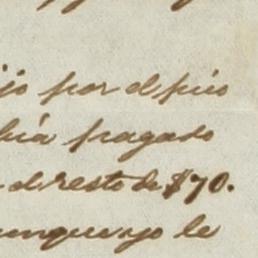 ijo por el piso
bía pagado
el resto de $70.
unque yo le